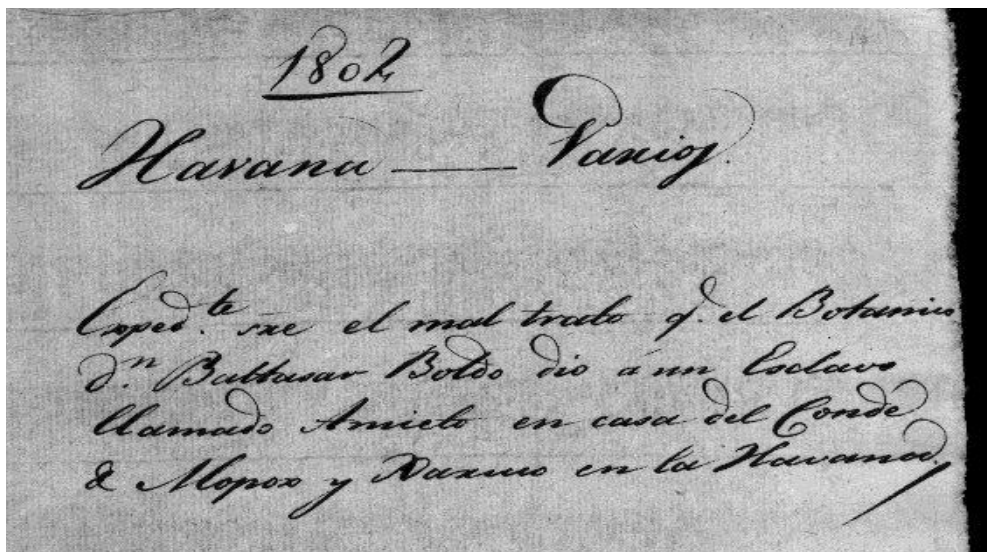 1802
Havana — Varios.
Exped.te sre el mal trato q.e el Botanico
D.n Baltasar Boldo dio á un Esclavo
llamado Aniceto en casa del Conde
de Mopox y Jaruco en la Havana.